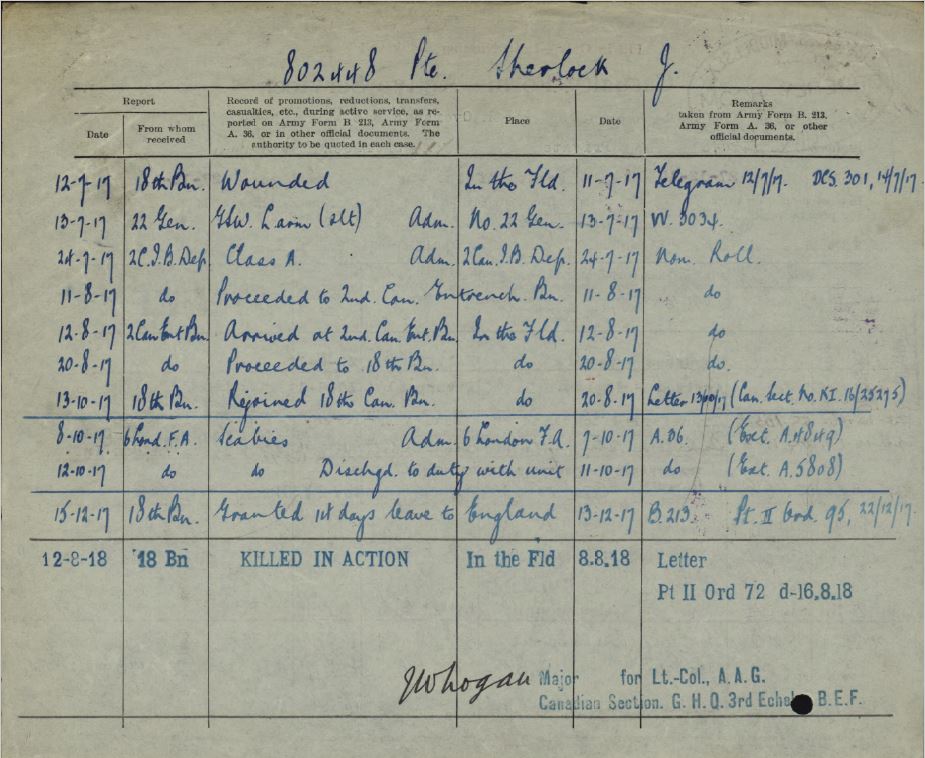 802448 Pte. Sherlock J.
Report
Date
From whom received
Record of promotions, reductions, transfers, casualties, etc., during active service, as reported on Army Form B 213, Army Form A. 36, or in other official documents. The authority to be quoted in each case.
Place
Date
Remarks taken from Army Form B. 213, Army Form A. 36, or other official documents.
12-7-17 18th Bn. Wounded In the Fld. 11-7-17 Telegram 12/7/17. DCS. 301, 14/7/17.
13-7-17 22 Gen. GSW L arm (slt) Adm. No. 22 Gen. 13-7-17 W. 3034.
24-7-17 2C.I.B. Dep. Class A. Adm. 2 Can. I.B. Dep. 24-7-17 Nom. Roll.
11-8-17 do Proceeded to 2nd. Can. Entrench. Bn. 11-8-17 do
12-8-17 2 Can Ent Bn. Arrived at 2nd. Can. Ent. Bn. In the Fld. 12-8-17 do
20-8-17 do Proceeded to 18th Bn. do 20-8-17 do.
13-10-17 18th Bn. Rejoined 18th Can. Bn. do 20-8-17 Letter (Can. Sect. No. KI. 16/25275)
8-10-17 6 Lond. F.A. Scabies Adm. 6 London F.A. 7-10-17 A.36. (Ext. A.4849)
12-10-17 do do Dischgd. to duty with unit 11-10-17 do (Ext. A.5808)
15-12-17 18th Bn. Granted 14 days leave to England 13-12-17 B.213. Pt. II Ord. 95, 22/12/17.
12-8-18 18 Bn KILLED IN ACTION In the Fld 8.8.18 Letter
Pt II Ord 72 d-16.8.18
Major for Lt.-Col., A.A.G.
Canadian Section. G. H. Q. 3rd Echelon B.E.F.